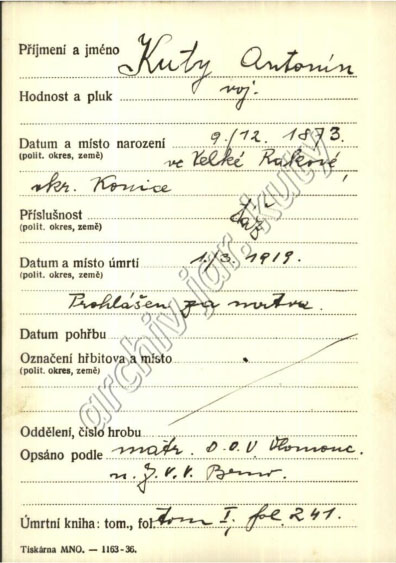 Příjmení a jméno Kuty Antonín
Hodnost a pluk voj.
Datum a místo narození 9./12. 1873.
(polit. okres, země) ve Velké Rakové,
okr. Konice
Příslušnost táž
(polit. okres, země)
Datum a místo úmrtí 1./3. 1919.
(polit. okres, země)
Prohlášen za mrtva.
Datum pohřbu
Označení hřbitova a místo
(polit. okres, země)
Oddělení, číslo hrobu
Opsáno podle matr. D.O.V. Olomouc.
n. Z.V.V. Brno.
Úmrtní kniha: tom., fol. tom I, fol. 241.
Tiskárna MNO. — 1163-36.
archiv jar. kuty